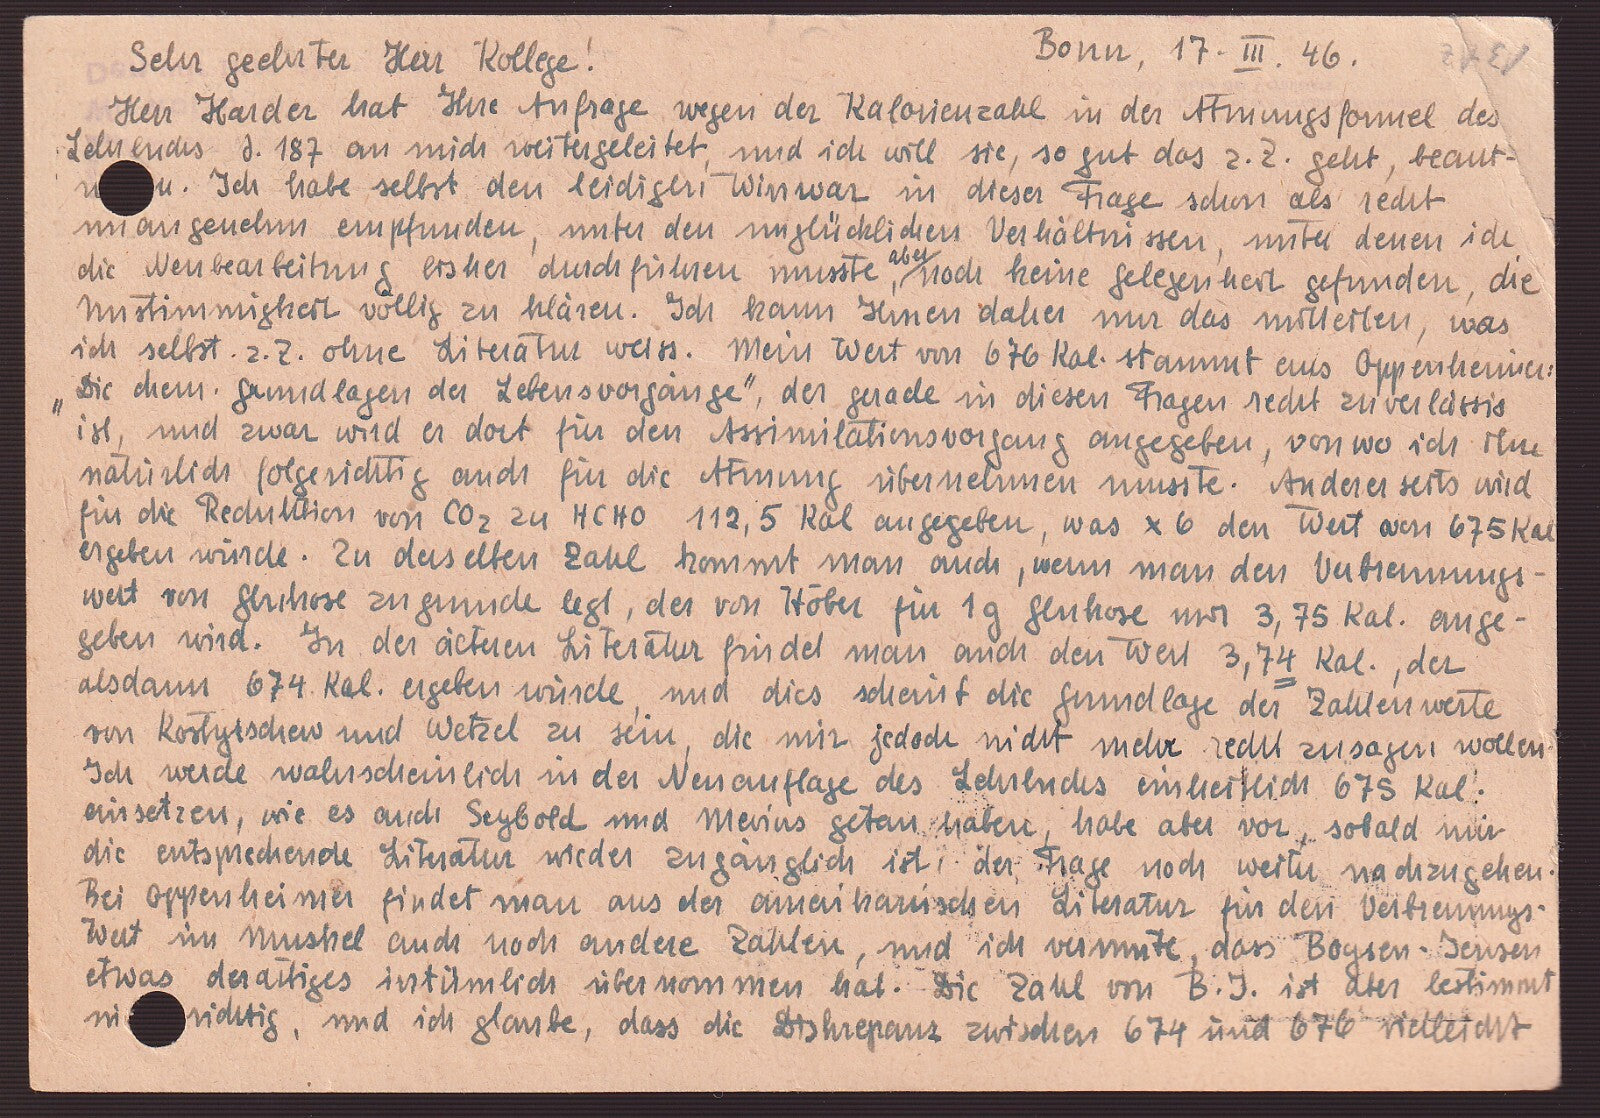 Bonn, 17. III. 46.
Sehr geehrter Herr Kollege!
Herr Harder hat Ihre Anfrage wegen der Kalorienzahl in der Atmungsformel des
Lehrbuchs S. 187 an mich weitergeleitet, und ich will sie, so gut das z. Z. geht, beant-
w n. Ich habe selbst den leidigen Wirrwar in dieser Frage schon als recht
unangenehm empfunden, unter den unglücklichen Verhältnissen, unter denen ich
die Neubearbeitung bisher durchführen musste, aber noch keine Gelegenheit gefunden, die
Unstimmigkeit völlig zu klären. Ich kann Ihnen daher nur das mitteilen, was
ich selbst z. Z. ohne Literatur weiss. Mein Wert von 676 Kal. stammt aus Oppenheimer:
„Die chem. Grundlagen der Lebensvorgänge“, der gerade in diesen Fragen recht zuverlässig
ist, und zwar wird er dort für den Assimilationsvorgang angegeben, von wo ich ihn
natürlich folgerichtig auch für die Atmung übernehmen musste. Andererseits wird
für die Reduktion von CO2 zu HCHO 112,5 Kal angegeben, was x 6 den Wert von 675 Kal
ergeben würde. Zu derselben Zahl kommt man auch, wenn man den Verbrennungs-
wert von Glukose zugrunde legt, der von Höber für 1g Glukose mit 3,75 Kal. ange-
geben wird. In der älteren Literatur findet man auch den Wert 3,74 Kal., der
alsdann 674 Kal. ergeben würde, und dies scheint die Grundlage der Zahlenwerte
von Kostytschew und Wetzel zu sein, die mir jedoch nicht mehr recht zusagen wollen.
Ich werde wahrscheinlich in der Neuauflage des Lehrbuchs einheitlich 675 Kal.
einsetzen, wie es auch Seybold und Mevius getan haben, habe aber vor, sobald mir
die entsprechende Literatur wieder zugänglich ist, der Frage noch weiter nachzugehen.
Bei Oppenheimer findet man aus der amerikanischen Literatur für den Verbrennungs-
Wert im Muskel auch noch andere Zahlen, und ich vermute, dass Boysen-Jensen
etwas derartiges irrtümlich übernommen hat. Die Zahl von B. J. ist aber bestimmt
ni richtig, und ich glaube, dass die Diskrepanz zwischen 674 und 676 vielleicht